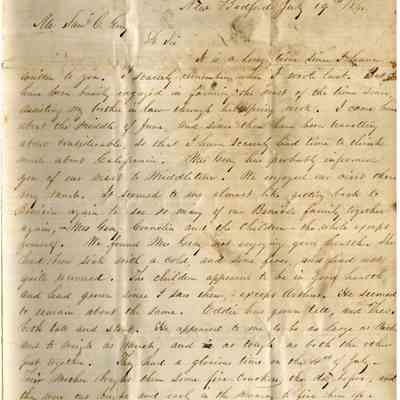 New Bedford, July 19th
Mr. Saml C. Gray
Dr Sir
It is a long time since I have
written to you. I scarcely remember when I wrote last. But I
have been busily engaged in farming the most of the time since,
assisting my brother in law through his spring work. I came home
about the middle of June, and since then have been travelling
about considerable, so that I have scarcely had time to think
much about California. Mrs Gray has probably informed
you of our visit to Middletown. We enjoyed our visit there
very much. It seemed to me almost like getting back to
Benicia again to see so many of our Benicia family together
again, Mrs Gray, Cornelia and the children the whole except
yourself. We found Mrs Gray not enjoying good health. She
had been sick with a cold, and some fever, and had not
quite recovered. The children appeared to be in good health
and had grown since I saw them, except Arthur. He seemed
to remain about the same. Eddie has grown tall, and
both tall and stout. He appeared to me to be as large as
and to weigh as much, and is as tough as both the other
put together. They had a glorious time on the 4th of July.
Mother bought them some fire crackers, the day before, and
they were out and early in the morning to fire them off.